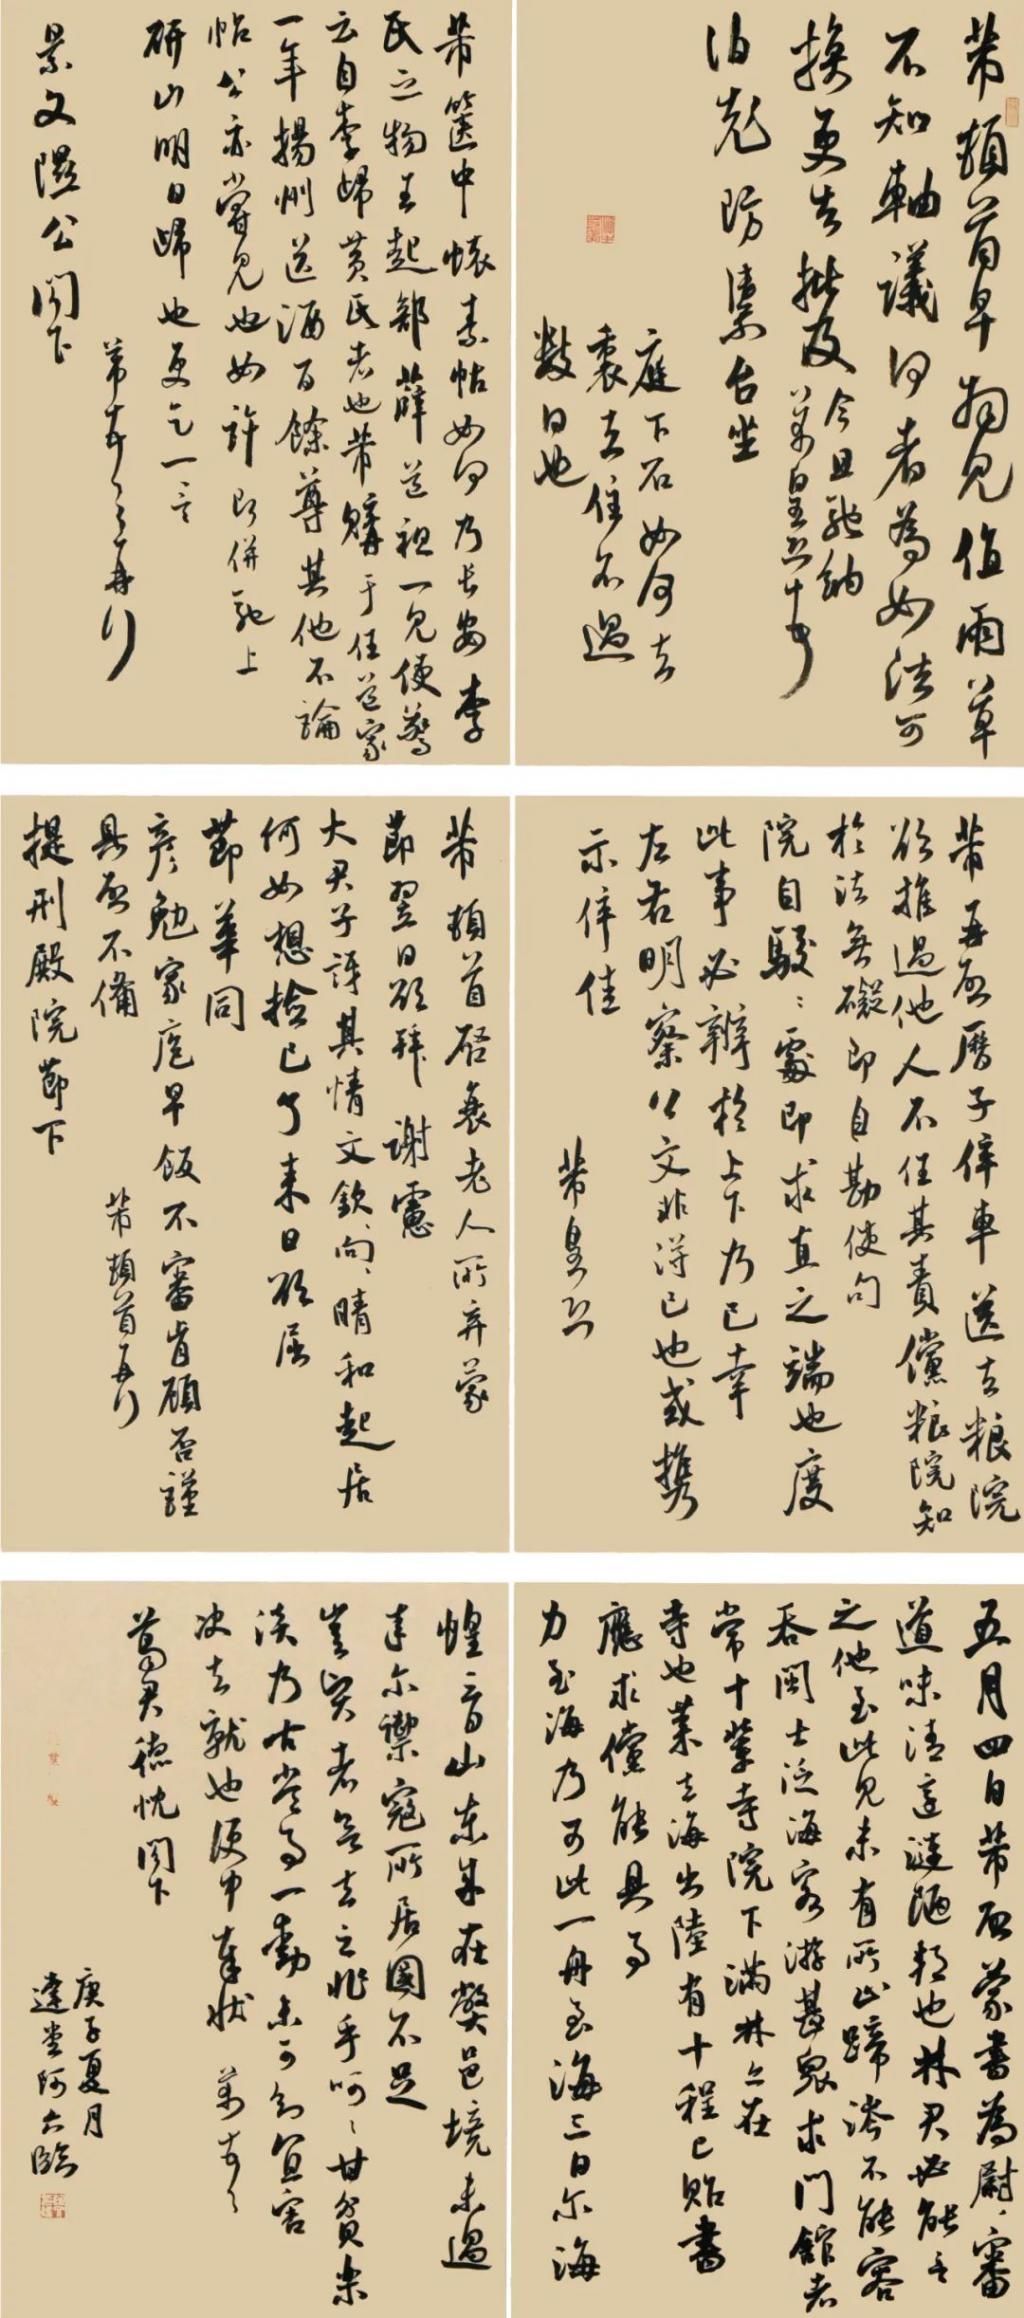 芾頓首早拗見值雨草
不知軸議何者為如法可
換更告批及今且馳納
芾皇恐頓首
伯充防禦台坐
庭下石如何去
裏去住不過
數日也
芾篋中懷素帖如何乃長安李
氏之物王起部薛道祖一見便驚
云自李歸黃氏者也芾購于任道家
一年揚州送酒百餘尊其他不論
帖公亦嘗見也如許即併馳上
研山明日歸也更乞一言
芾頓首再拜
景文隰公閤下
芾再啟曆子倅車送去糧院
欲推過他人不任其責儻糧院知
於法無礙即自勘使句
院自駮駮處即求直之端也度
此事必辨於上下乃已幸
左右明察公文非得已也或攜
示倅佳
芾皇恐
芾頓首啓衰老人所弃蒙
節翌日欲拜謝憲
大君子詩其情文欽欽向向晴和起居
何如想檢已了來日欲屈
節華同
彥勉家庭早飯不審肯顧否謹
具啟不備
芾頓首再拜
提刑殿院節下
五月四日芾啟蒙書為尉尉審
道味清適漣陋邦也林君必能言
之他至此見未有所止蹄涔不能容
吞閩士泛海客游甚眾求門館者
常十輩寺院下滿林亦在
寺也萊去海出陸有十程已貽書
應求儻能具事
力至海乃可此一舟至海三日尔海
蝗云自山東來在弊邑境未過
來尔禦寇所居國不足
豈賢者欲去之兆乎呵呵甘貧樂
淡乃古事一動未可知宜審
決去就也便中奉狀芾頓首
葛君德忱閤下
庚子夏月
達堂阿六臨